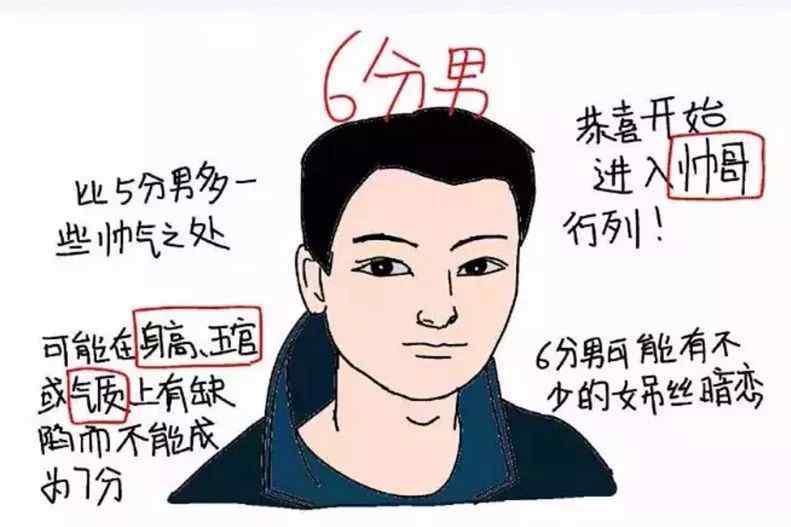 6分男
比5分男多一
些帅气之处
恭喜开始
进入帅哥
行列！
可能在身高、五官
或气质上有缺
陷而不能成
为7分
6分男可能有不
少的女吊丝暗恋